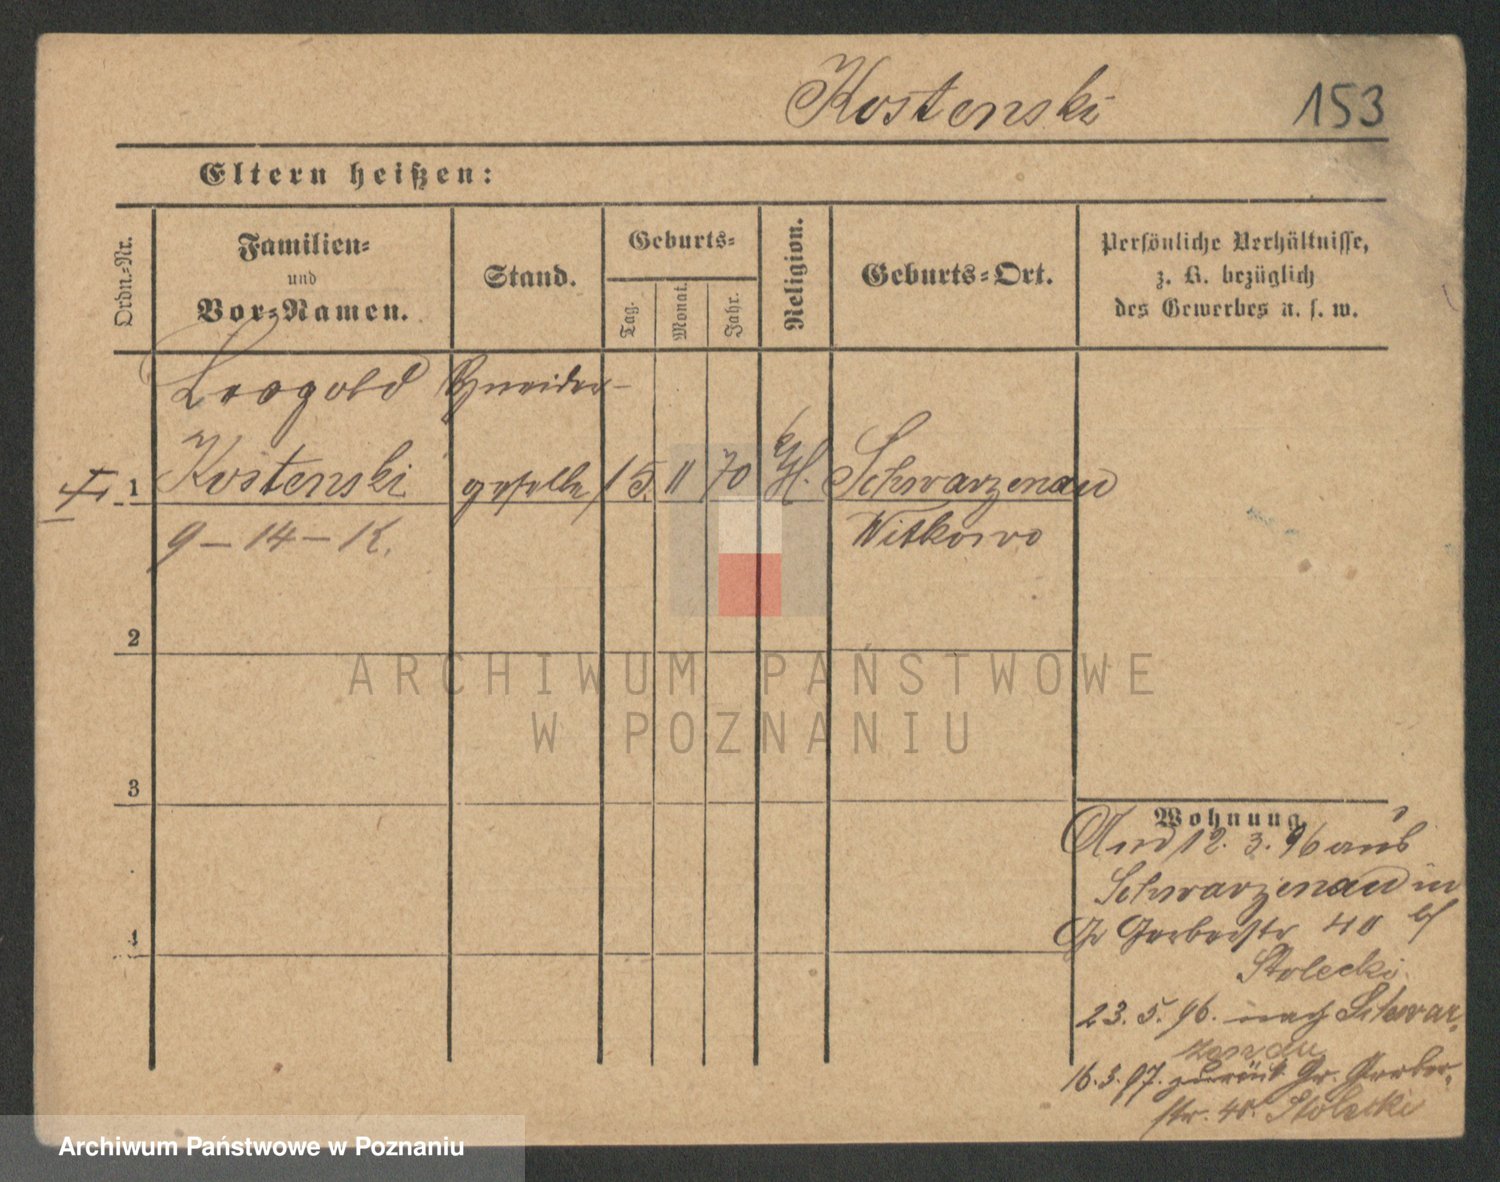 Kostenski 153
Eltern heißen:
Ordn.-Nr.
Familien-
und
Vor-Namen.
Stand.
Geburts-
Tag.
Monat.
Jahr.
Religion.
Geburts-Ort.
Persönliche Verhältnisse,
z. B. bezüglich
des Gewerbes u. s. w.
Leopold Schneider-
1 Kostenski geselle 15 11 70 Schwarzenau
9 - 14 - K. Witkowo
2
3
4
ARCHIWUM PAŃSTWOWE
W POZNANIU
Wohnung
12. 3. 96 aus
Schwarzenau in
Gr Gerberstr 40 bf
Stolecki
23. 5. 96. nach Schwar-
zenau
16. 3. 97. zurück Gr. Gerber-
str. 40. Stolecki
Archiwum Państwowe w Poznaniu